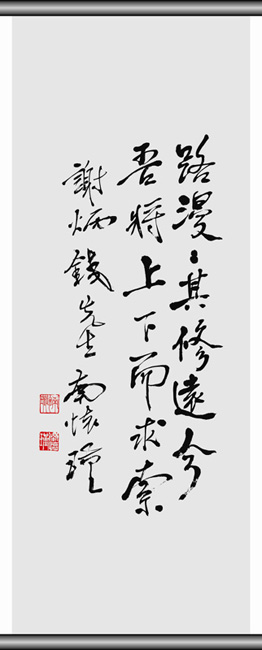 路漫〻其修遠兮
吾將上下而求索
謝炳錢先生 南懷瑾